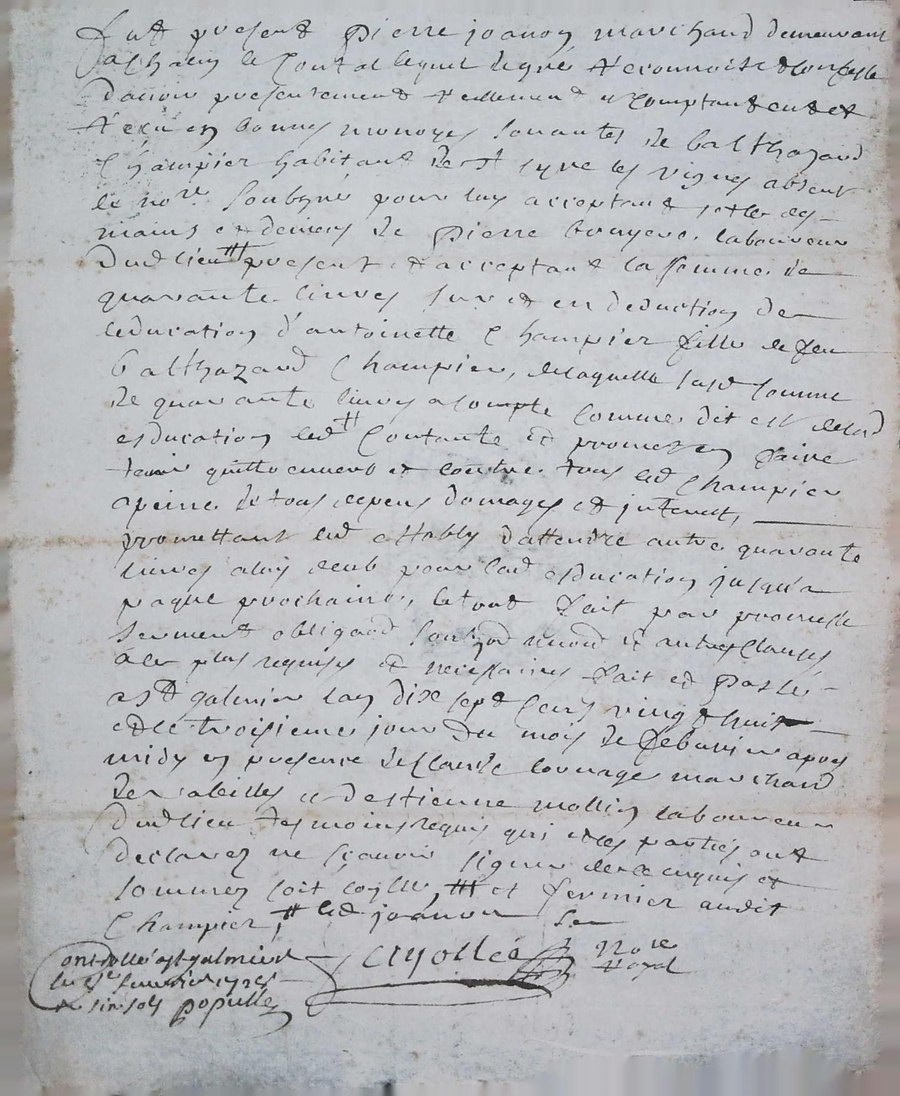 Fut present Pierre joanon marchand demeurant
a Chazelles le Contal lequel de gré & reconnoist & confesse
d'avoir presentement & reellement & comptant eu et
receu en bonnes monoyes sonantes de balthazard
Champier habitant de st Cyre les vignes absent
le nore soubsigné pour luy acceptant et des
mains et deniers de Pierre bruyere laboureur
dud lieu present & acceptant la somme de
quarante livres sur et en deduction de
leducation d'antoinette Champier fille de feu
balthazard Champier, de laquelle susd somme
de quarante livres a compte comme dit est de lad
education led Contante et promet en faire
tenir quitte envers et contre tous led Champier
a peine de tous depens domages et interest,
promettant led estably d'attendre autre quarante
livres a luy deub pour lad education jusqu'a
paque prochaine, le tout fait par promesse
serment obligaon renon et autres Clauses
a ce plus requises et necessaires fait et passé
a st galmier lan dix sept cent vingt huit
et le troisieme jour du mois de febvrier apres
midy en presence de Claude marchand
et d'estienne mollin laboureur
dud lieu tesmoins requis qui et les parties ont
declarez ne sçavoir signer de ce enquis et
sommez soit et fermier audit
Champier, led joanon
Cayollet nore royal
Controllé a st galmier
le fevrier 1728
Re six sols populle